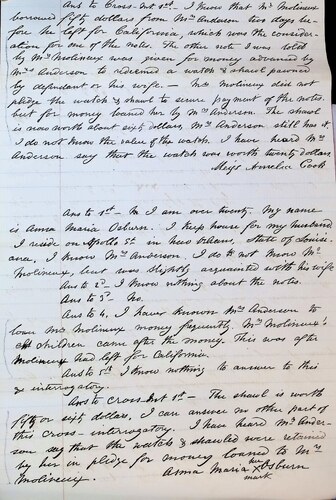 Ans to Cross-Int 1st. - I know that Mr Molineux
borrowed fifty dollars from Mrs Anderson two days be-
fore he left for California, which was the consider-
ation for one of the notes. The other note I was told
by Mrs Molineux was given for money advanced by
Mrs Anderson to redeemed a watch & shawl pawned
by defendant or his wife. - Mrs Molineux did not
pledge the watch & shawl to secure payment of the notes.
but for money loaned her by Mrs Anderson. The shawl
is now worth about sixty dollars, Mrs Anderson still has it.
I do not know the value of the watch. I have heard Mrs
Anderson say that the watch was worth twenty dollars
Miss Amelia Cook
Ans to 1st - I am over twenty. My name
is Anna Maria Osburn. I keep house for my husband
I reside on Apollo St in New Orleans, State of Louisi-
ana, I know Mrs Anderson. I do not know Mr
Molineux, but was slightly acquainted with his wife
Ans to 2d - I know nothing about the notes.
Ans to 3d - No.
Ans to 4. I have known Mrs Anderson to
loan Mrs Molineux money frequently. Mrs Molineux's
children came after the money. This was after
Molineux had left for California.
Ans to 5th I know nothing to answer to this
interrogatory.
Ans to Cross-Int 1st - The shawl is worth
fifty or sixty dollars, I can answer no other part of
this cross-interrogatory. I have heard Mrs Ander-
son say that the watch & shawl were retained
by her in pledge for money loaned to Mrs
Molineux.
Anna Maria her x mark Osburn